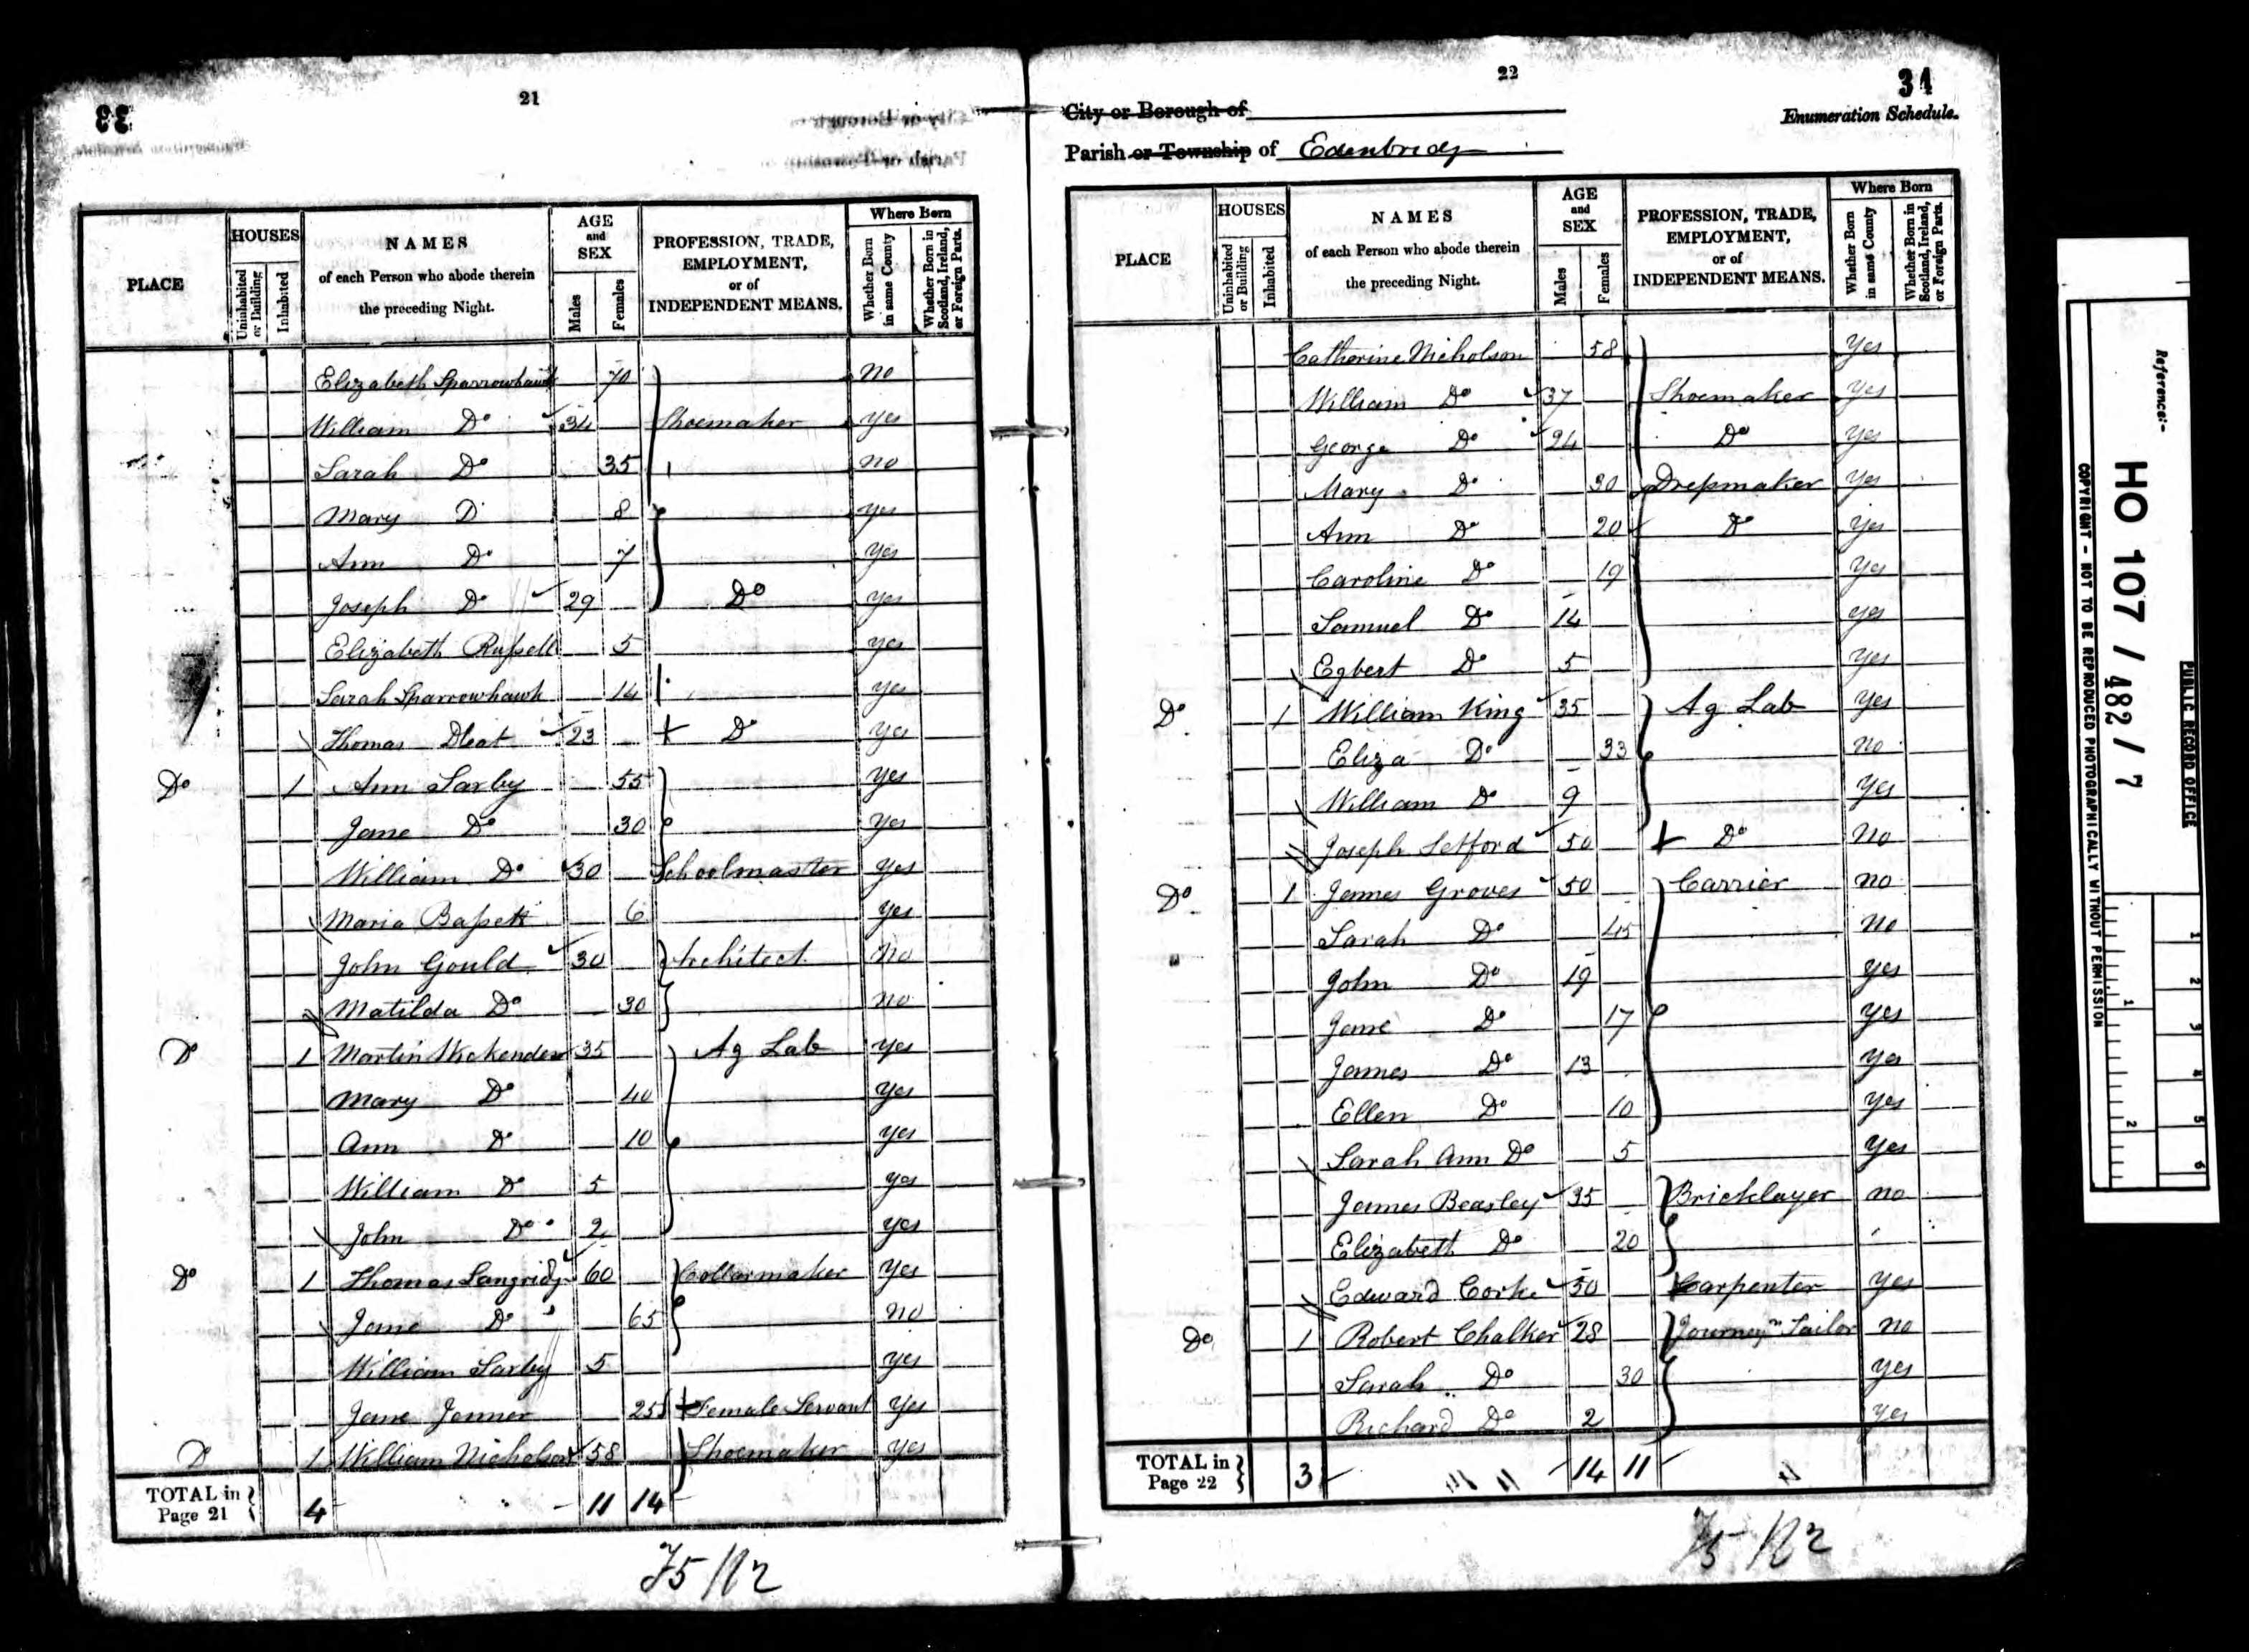 33
21
PLACE
HOUSES
Uninhabited or Building
Inhabited
NAMES
of each Person who abode therein
the preceding Night.
AGE and SEX
Males
Females
PROFESSION, TRADE, EMPLOYMENT, or of INDEPENDENT MEANS.
Where Born
Whether Born in same County
Whether Born in Scotland, Ireland, or Foreign Parts.
Elizabeth Sparrowhawk 70 no
William Do 34 Shoemaker yes
Sarah Do 35 no
Mary D 8 yes
Ann Do 7 yes
Joseph Do 29 Do yes
Elizabeth Russell 5 yes
Sarah Sparrowhawk 14 yes
Thomas 23 Do yes
Do 1 Ann Saxby 55 yes
Jane Do 30 yes
William Do 30 Schoolmaster yes
Maria Bassett 6 yes
John Gould 30 Architect no
Matilda Do 30 no
Do 1 Martin Wickenden 35 Ag Lab yes
Mary Do 40 yes
Ann Do 10 yes
William Do 5 yes
John Do 2 yes
Do 1 Thomas Langridge 60 Collarmaker yes
Jane Do 65 no
William Saxby 5 yes
Jane Jenner 25 Female Servant yes
D 1 William Nicholson 58 Shoemaker yes
TOTAL in Page 21 4 11 14
22
34
City or Borough of
Enumeration Schedule.
Parish or Township of Edenbridge
PLACE
HOUSES
Uninhabited or Building
Inhabited
NAMES
of each Person who abode therein
the preceding Night.
AGE and SEX
Males
Females
PROFESSION, TRADE, EMPLOYMENT, or of INDEPENDENT MEANS.
Where Born
Whether Born in same County
Whether Born in Scotland, Ireland, or Foreign Parts.
Catherine Nicholson 58 yes
William Do 37 Shoemaker yes
George Do 24 Do yes
Mary Do 30 Dressmaker yes
Ann Do 20 Do yes
Caroline Do 19 yes
Samuel Do 14 yes
Egbert Do 5 yes
Do 1 William King 35 Ag Lab yes
Eliza Do 33 no
William Do 9 yes
Joseph Setford 50 Do no
Do 1 James Groves 50 Carrier no
Sarah Do 45 no
John Do 19 yes
Jane Do 17 yes
James Do 13 yes
Ellen Do 10 yes
Sarah Ann Do 5 yes
James Beasley 35 Bricklayer no
Elizabeth Do 20
Edward Corke 50 Carpenter yes
Do 1 Robert Chalker 28 Journeyn Tailor no
Sarah Do 30 yes
Richard Do 2 yes
TOTAL in Page 22 3 14 11
Reference:-
HO 107 / 482 / 7
PUBLIC RECORD OFFICE
COPYRIGHT - NOT TO BE REPRODUCED PHOTOGRAPHICALLY WITHOUT PERMISSION
1 2 3 4 5 6
1 2